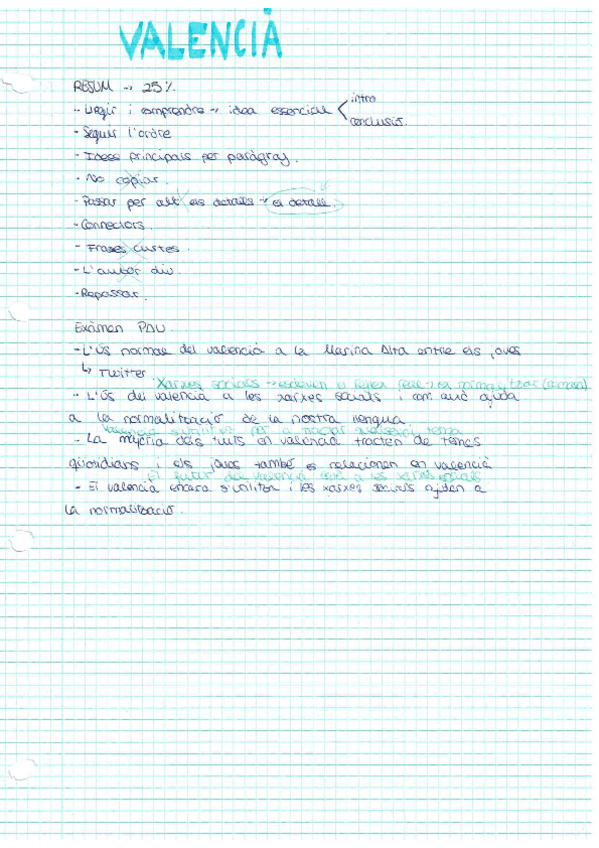 VALENCIÀ
RESUM → 25%.
- Llegir i comprendre → idea essencial < intro
conclusió.
- Seguir l'ordre
- Idees principals per paràgraf.
- No copiar.
- Passar per alt els detalls → el detall.
- Connectors.
- Frases curtes.
- L'autor diu
- Repassar.
Exàmen PAU.
- L'ús normal del valencià a la Marina Alta entre els joves
↳ Twitter
Xarxes socials → escriuen la llengua real →
- L'ús del valencià a les xarxes socials i com això ajuda
a la normalització de la nostra llengua.
valencià per a tractar qualsevol tema
- La majoria dels tuits en valencià tracten de temes
quotidians i els joves també es relacionen en valencià
El futur del valencià a les xarxes socials
- El valencià encara s'utilitza i les xarxes socials ajuden a
la normalització.